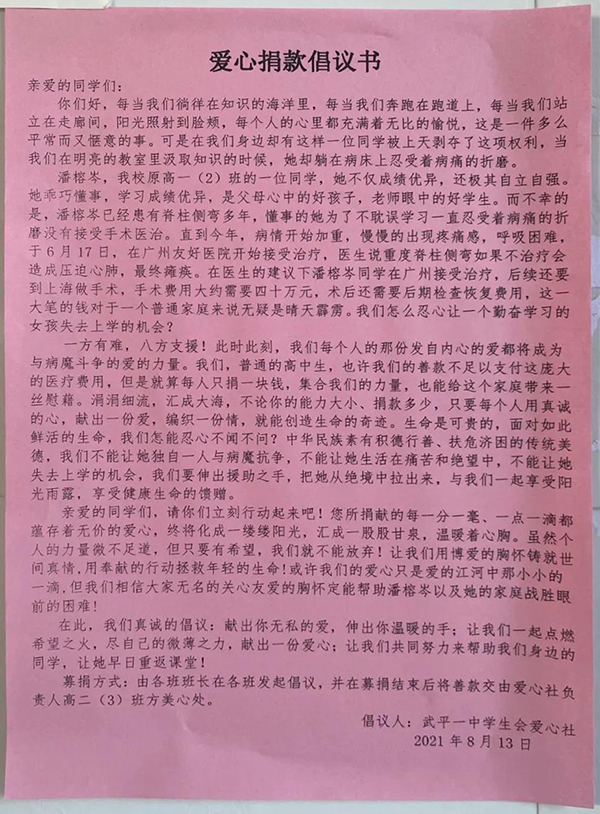 爱心捐款倡议书
亲爱的同学们：
你们好，每当我们徜徉在知识的海洋里，每当我们奔跑在跑道上，每当我们站
立在走廊间，阳光照射到脸颊，每个人的心里都充满着无比的愉悦，这是一件多么
平常而又惬意的事。可是在我们身边却有这样一位同学被上天剥夺了这项权利，当
我们在明亮的教室里汲取知识的时候，她却躺在病床上忍受着病痛的折磨。
潘榕岑，我校原高一（2）班的一位同学，她不仅成绩优异，还极其自立自强。
她乖巧懂事，学习成绩优异，是父母心中的好孩子，老师眼中的好学生。而不幸的
是，潘榕岑已经患有脊柱侧弯多年，懂事的她为了不耽误学习一直忍受着病痛的折
磨没有接受手术医治。直到今年，病情开始加重，慢慢的出现疼痛感，呼吸困难，
于6月17日，在广州友好医院开始接受治疗，医生说重度脊柱侧弯如果不治疗会
造成压迫心肺，最终瘫痪。在医生的建议下潘榕岑同学在广州接受治疗，后续还要
到上海做手术，手术费用大约需要四十万元，术后还需要后期检查恢复费用，这一
大笔的钱对于一个普通家庭来说无疑是晴天霹雳。我们怎么忍心让一个勤奋学习的
女孩失去上学的机会？
一方有难，八方支援！此时此刻，我们每个人的那份发自内心的爱都将成为
与病魔斗争的爱的力量。我们，普通的高中生，也许我们的善款不足以支付这庞大
的医疗费用，但是就算每人只捐一块钱，集合我们的力量，也能给这个家庭带来一
丝慰藉。涓涓细流，汇成大海，不论你的能力大小、捐款多少，只要每个人用真诚
的心，献出一份爱，编织一份情，就能创造生命的奇迹。生命是可贵的，面对如此
鲜活的生命，我们怎能忍心不闻不问？中华民族素有积德行善、扶危济困的传统美
德，我们不能让她独自一人与病魔抗争，不能让她生活在痛苦和绝望中，不能让她
失去上学的机会，我们要伸出援助之手，把她从绝境中拉出来，与我们一起享受阳
光雨露，享受健康生命的馈赠。
亲爱的同学们，请你们立刻行动起来吧！您所捐献的每一分一毫、一点一滴都
蕴存着无价的爱心，终将化成一缕缕阳光，汇成一股股甘泉，温暖着心胸。虽然个
人的力量微不足道，但只要有希望，我们就不能放弃！让我们用博爱的胸怀铸就世
间真情,用奉献的行动拯救年轻的生命!或许我们的爱心只是爱的江河中那小小的
一滴,但我们相信大家无名的关心友爱的胸怀定能帮助潘榕岑以及她的家庭战胜眼
前的困难!
在此，我们真诚的倡议：献出你无私的爱，伸出你温暖的手；让我们一起点燃
希望之火，尽自己的微薄之力，献出一份爱心；让我们共同努力来帮助我们身边的
同学，让她早日重返课堂！
募捐方式：由各班班长在各班发起倡议，并在募捐结束后将善款交由爱心社负
责人高二（3）班方美心处。
倡议人：武平一中学生会爱心社
2021年8月13日